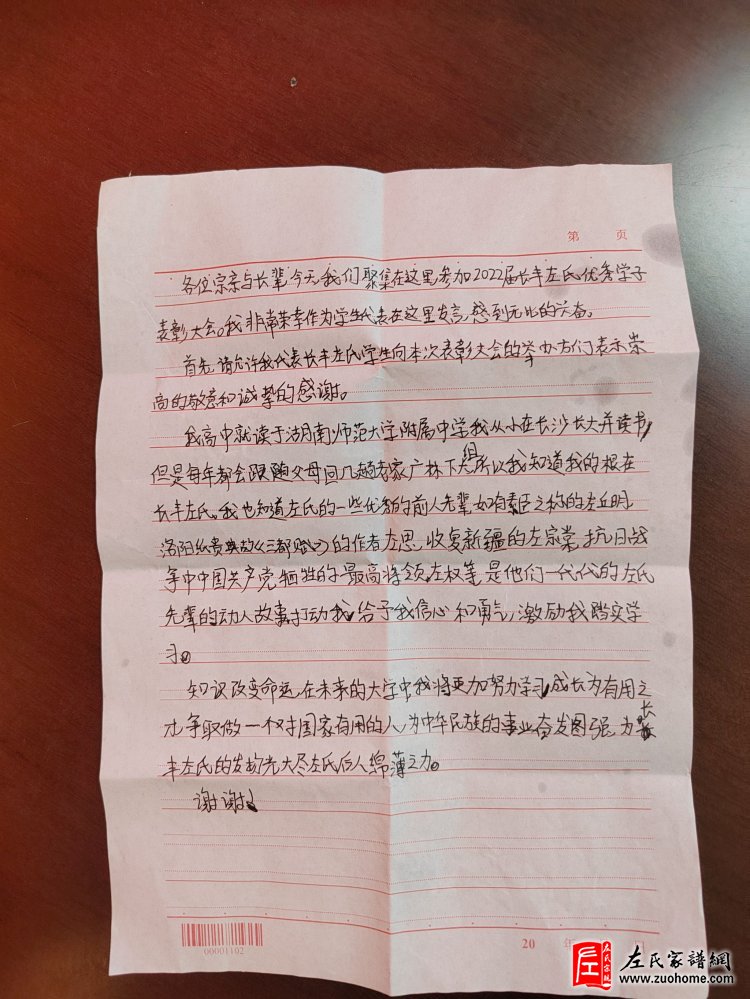 第 页
各位宗亲与长辈,今天我们聚集在这里参加2022届长丰左氏优秀学子
表彰大会。我非常荣幸作为学生代表在这里发言,感到无比的兴奋。
首先,请允许我代表长丰左氏学生向本次表彰大会的举办方们表示崇
高的敬意和诚挚的感谢。
我高中就读于湖南师范大学附属中学,我从小在长沙长大并读书,
但是每年都会跟随父母回几趟老家广林下大组,所以我知道我的根在
长丰左氏。我也知道左氏的一些优秀的前人先辈,如有素臣之称的左丘明,
洛阳纸贵典故《三都赋》的作者左思,收复新疆的左宗棠,抗日战
争中中国共产党牺牲的最高将领左权等,是他们一代代的左氏
先辈的动人故事打动我,给予我信心和勇气,激励我踏实学
习。
知识改变命运,在未来的大学中我将更加努力学习,成长为有用之
才,争取做一个对国家有用的人,为中华民族的事业奋发图强,为长
丰左氏的发扬光大尽左氏后人绵薄之力。
谢谢!
00001102
20 年
左氏宗亲
左氏家譜網
www.zuohome.com